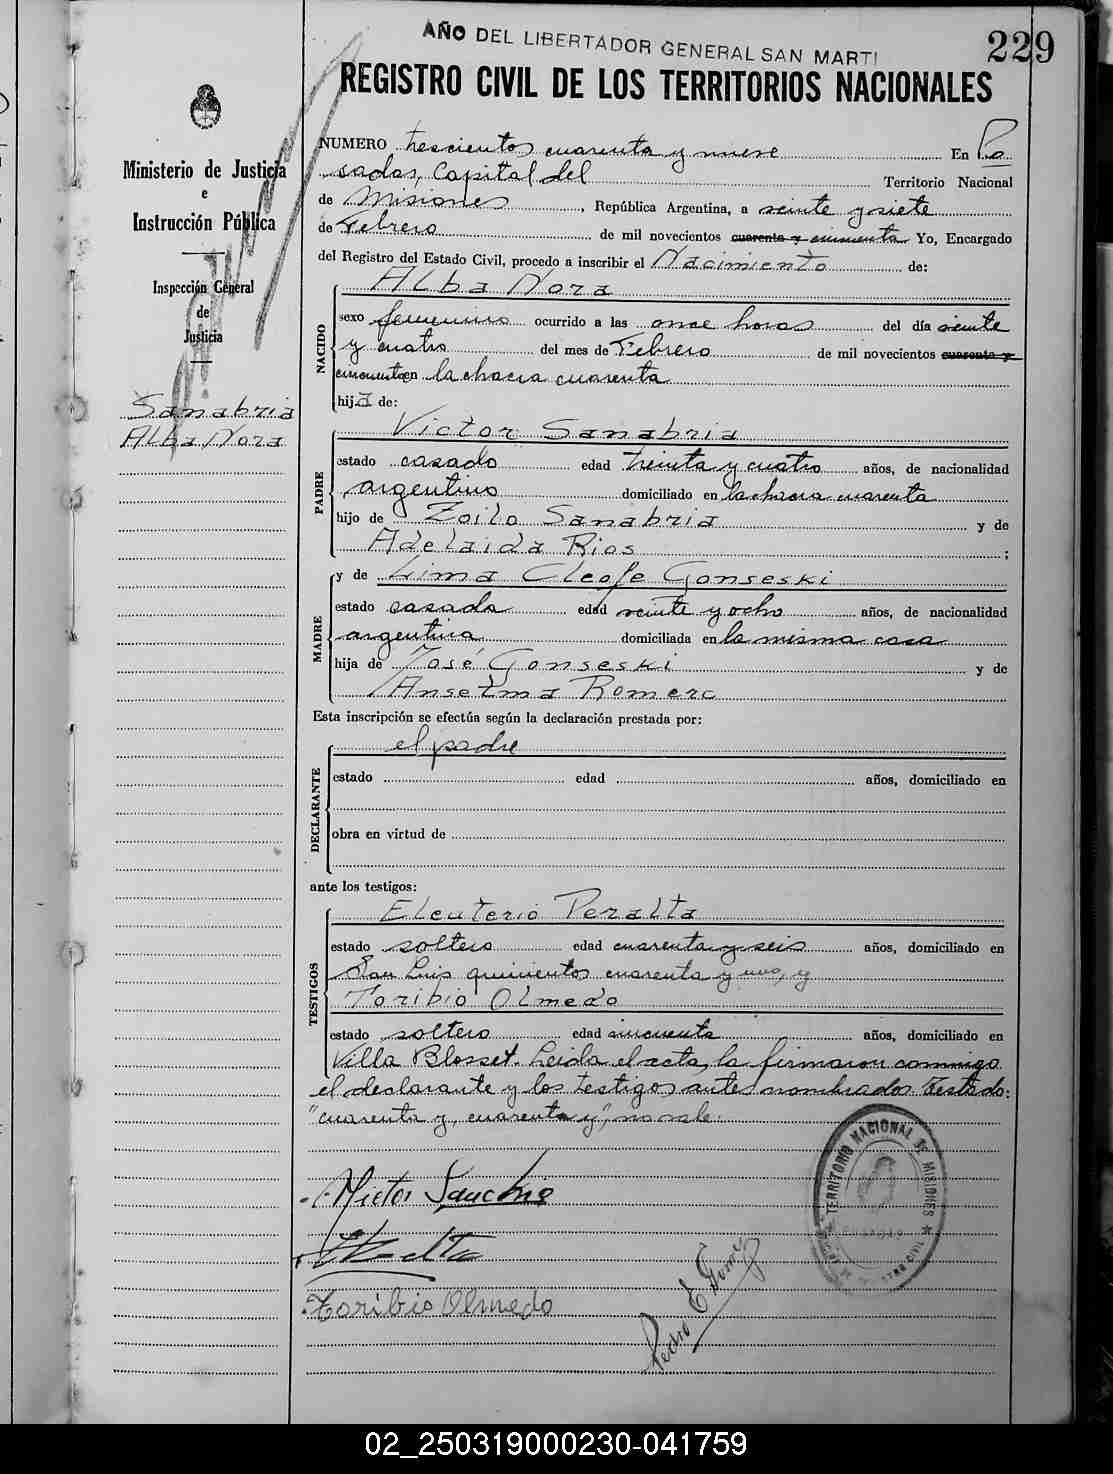 AÑO DEL LIBERTADOR GENERAL SAN MARTI
229
REGISTRO CIVIL DE LOS TERRITORIOS NACIONALES
Ministerio de Justicia
e
Instrucción Pública
Inspección General
de
Justicia
Sanabria
Alba Nora
NUMERO trescientos cuarenta y nueve En Po
sadas, Capital del Territorio Nacional
de Misiones, República Argentina, a veinte y siete
de Febrero de mil novecientos cuarenta y cincuenta Yo, Encargado
del Registro del Estado Civil, procedo a inscribir el Nacimiento de:
NACIDO
Alba Nora
sexo femenino ocurrido a las once horas del día veinte
y cuatro del mes de Febrero de mil novecientos cuarenta y
cincuenta en la chacra cuarenta
hija de:
PADRE
Victor Sanabria
estado casado edad treinta y cuatro años, de nacionalidad
argentino domiciliado en la chacra cuarenta
hijo de Zoilo Sanabria y de
Adelaida Rios ;
MADRE
y de Lima Cleofe Gonseski
estado casada edad veinte y ocho años, de nacionalidad
argentina domiciliada en la misma casa
hija de José Gonseski y de
Anselma Romero
Esta inscripción se efectúa según la declaración prestada por:
DECLARANTE
el padre
estado edad años, domiciliado en
obra en virtud de
ante los testigos:
TESTIGOS
Eleuterio Peralta
estado soltero edad cuarenta y seis años, domiciliado en
San Luis quinientos cuarenta y uno, y
Toribio Olmedo
estado soltero edad cincuenta años, domiciliado en
Villa Blosset. Leida el acta, la firmaron conmigo
el declarante y los testigos antes nombrados. Testado:
"cuarenta y, cuarenta y", no vale.
TERRITORIO NACIONAL DE MISIONES
Victor Sanabria
Toribio Olmedo
Pedro E Gomez
02_250319000230-041759